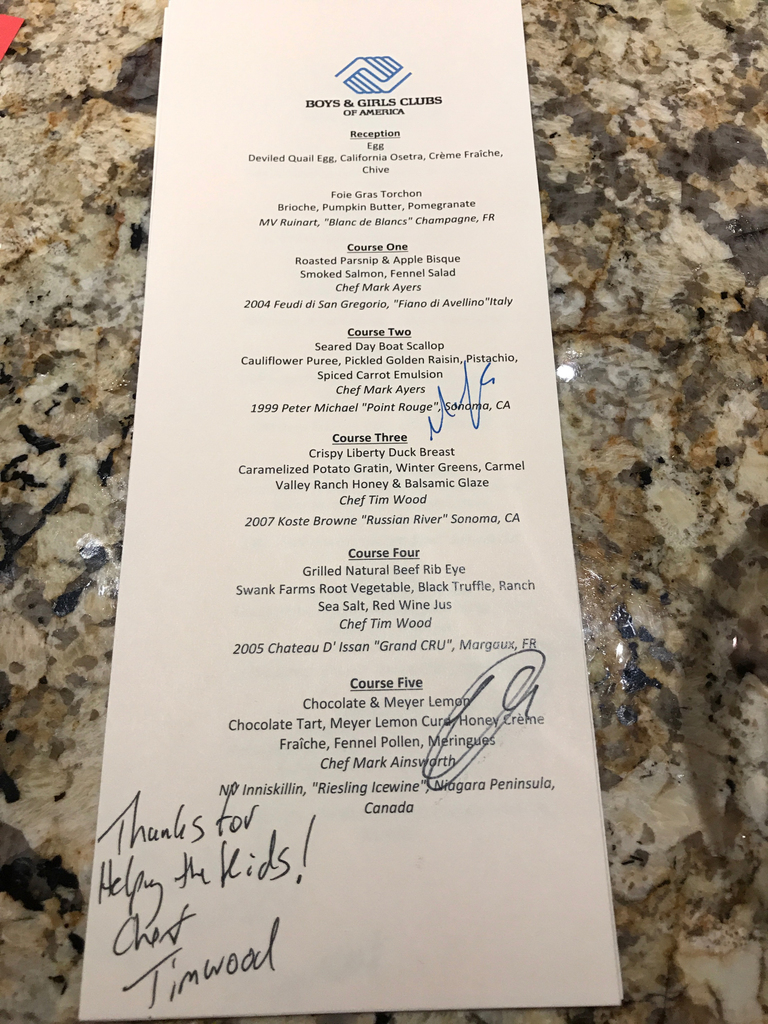 BOYS & GIRLS CLUBS
OF AMERICA
Reception
Egg
Deviled Quail Egg, California Osetra, Crème Fraîche,
Chive
Foie Gras Torchon
Brioche, Pumpkin Butter, Pomegranate
MV Ruinart, "Blanc de Blancs" Champagne, FR
Course One
Roasted Parsnip & Apple Bisque
Smoked Salmon, Fennel Salad
Chef Mark Ayers
2004 Feudi di San Gregorio, "Fiano di Avellino"Italy
Course Two
Seared Day Boat Scallop
Cauliflower Puree, Pickled Golden Raisin, Pistachio,
Spiced Carrot Emulsion
Chef Mark Ayers
1999 Peter Michael "Point Rouge", Sonoma, CA
Course Three
Crispy Liberty Duck Breast
Caramelized Potato Gratin, Winter Greens, Carmel
Valley Ranch Honey & Balsamic Glaze
Chef Tim Wood
2007 Koste Browne "Russian River" Sonoma, CA
Course Four
Grilled Natural Beef Rib Eye
Swank Farms Root Vegetable, Black Truffle, Ranch
Sea Salt, Red Wine Jus
Chef Tim Wood
2005 Chateau D' Issan "Grand CRU", Margaux, FR
Course Five
Chocolate & Meyer Lemon
Chocolate Tart, Meyer Lemon Curd, Honey Crème
Fraîche, Fennel Pollen, Meringues
Chef Mark Ainsworth
NV Inniskillin, "Riesling Icewine", Niagara Peninsula,
Canada
Thanks for
Helping the Kids!
Chef
Tim Wood